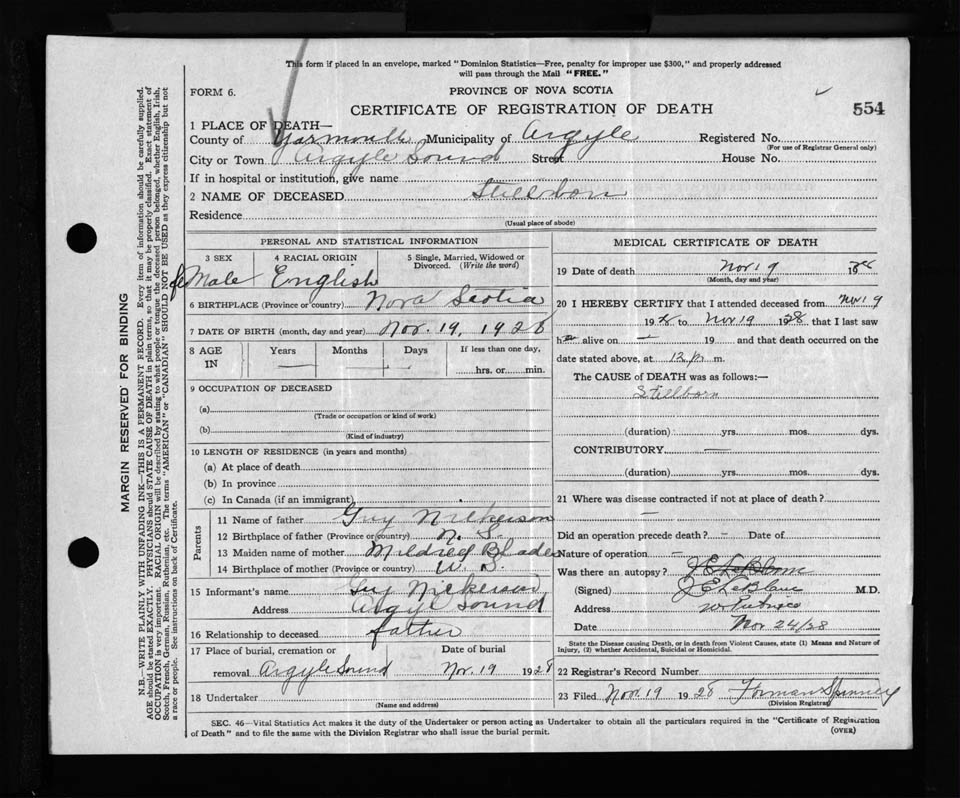 This form if placed in an envelope, marked "Dominion Statistics—Free, penalty for improper use $300," and properly addressed
will pass through the Mail "FREE."
FORM 6.
PROVINCE OF NOVA SCOTIA
CERTIFICATE OF REGISTRATION OF DEATH
554
1 PLACE OF DEATH—
County of Yarmouth, Municipality of Argyle Registered No.
(For use of Registrar General only)
City or Town Argyle Sound Street House No.
If in hospital or institution, give name
2 NAME OF DECEASED Stillborn
Residence
(Usual place of abode)
PERSONAL AND STATISTICAL INFORMATION
3 SEX 4 RACIAL ORIGIN 5 Single, Married, Widowed or Divorced. (Write the word)
feMale English
6 BIRTHPLACE (Province or country) Nova Scotia
7 DATE OF BIRTH (month, day and year) Nov. 19, 1928
8 AGE IN Years Months Days If less than one day,
— - - hrs. or min.
9 OCCUPATION OF DECEASED
(a)
(Trade or occupation or kind of work)
(b)
(Kind of industry)
10 LENGTH OF RESIDENCE (in years and months)
(a) At place of death
(b) In province
(c) In Canada (if an immigrant)
Parents
11 Name of father Guy Nickerson
12 Birthplace of father (Province or country) N. S.
13 Maiden name of mother Mildred Blades
14 Birthplace of mother (Province or country)
15 Informant's name Guy Nickerson
Address Argyle Sound
16 Relationship to deceased father
17 Place of burial, cremation or Date of burial
removal Argyle Sound Nov. 19 1928
18 Undertaker
(Name and address)
MEDICAL CERTIFICATE OF DEATH
19 Date of death Nov 19 1928
(Month, day and year)
20 I HEREBY CERTIFY that I attended deceased from Nov 19
1928 to Nov 19 1928 that I last saw
h alive on — 19 and that death occurred on the
date stated above, at 12 p. m.
The CAUSE of DEATH was as follows:—
Stillborn
(duration) yrs. mos. dys.
CONTRIBUTORY —
(duration) yrs. mos. dys.
21 Where was disease contracted if not at place of death?
—
Did an operation precede death? - Date of
Nature of operation —
Was there an autopsy? J E LeBlanc
(Signed) J E LeBlanc M.D.
Address W Pubnico
Date Nov 24/28
State the Disease causing Death, or in death from Violent Causes, state (1) Means and Nature of
Injury, (2) whether Accidental, Suicidal or Homicidal.
22 Registrar's Record Number
23 Filed Nov. 19 1928 Forman Spinney
(Division Registrar)
SEC. 46—Vital Statistics Act makes it the duty of the Undertaker or person acting as Undertaker to obtain all the particulars required in the "Certificate of Registration
of Death" and to file the same with the Division Registrar who shall issue the burial permit.
(OVER)
MARGIN RESERVED FOR BINDING
N.B.—WRITE PLAINLY WITH UNFADING INK—THIS IS A PERMANENT RECORD. Every item of information should be carefully supplied.
AGE should be stated EXACTLY. PHYSICIANS should STATE CAUSE OF DEATH in plain terms, so that it may be properly classified. Exact statement of
OCCUPATION is very important. RACIAL ORIGIN will be described by stating to what people or tongue the deceased person belonged, whether English, Irish,
Scotch, French, German, Russian, Ruthenian, etc. The terms "AMERICAN" or "CANADIAN" SHOULD NOT BE USED as they express citizenship but not
a race or people. See instructions on back of Certificate.